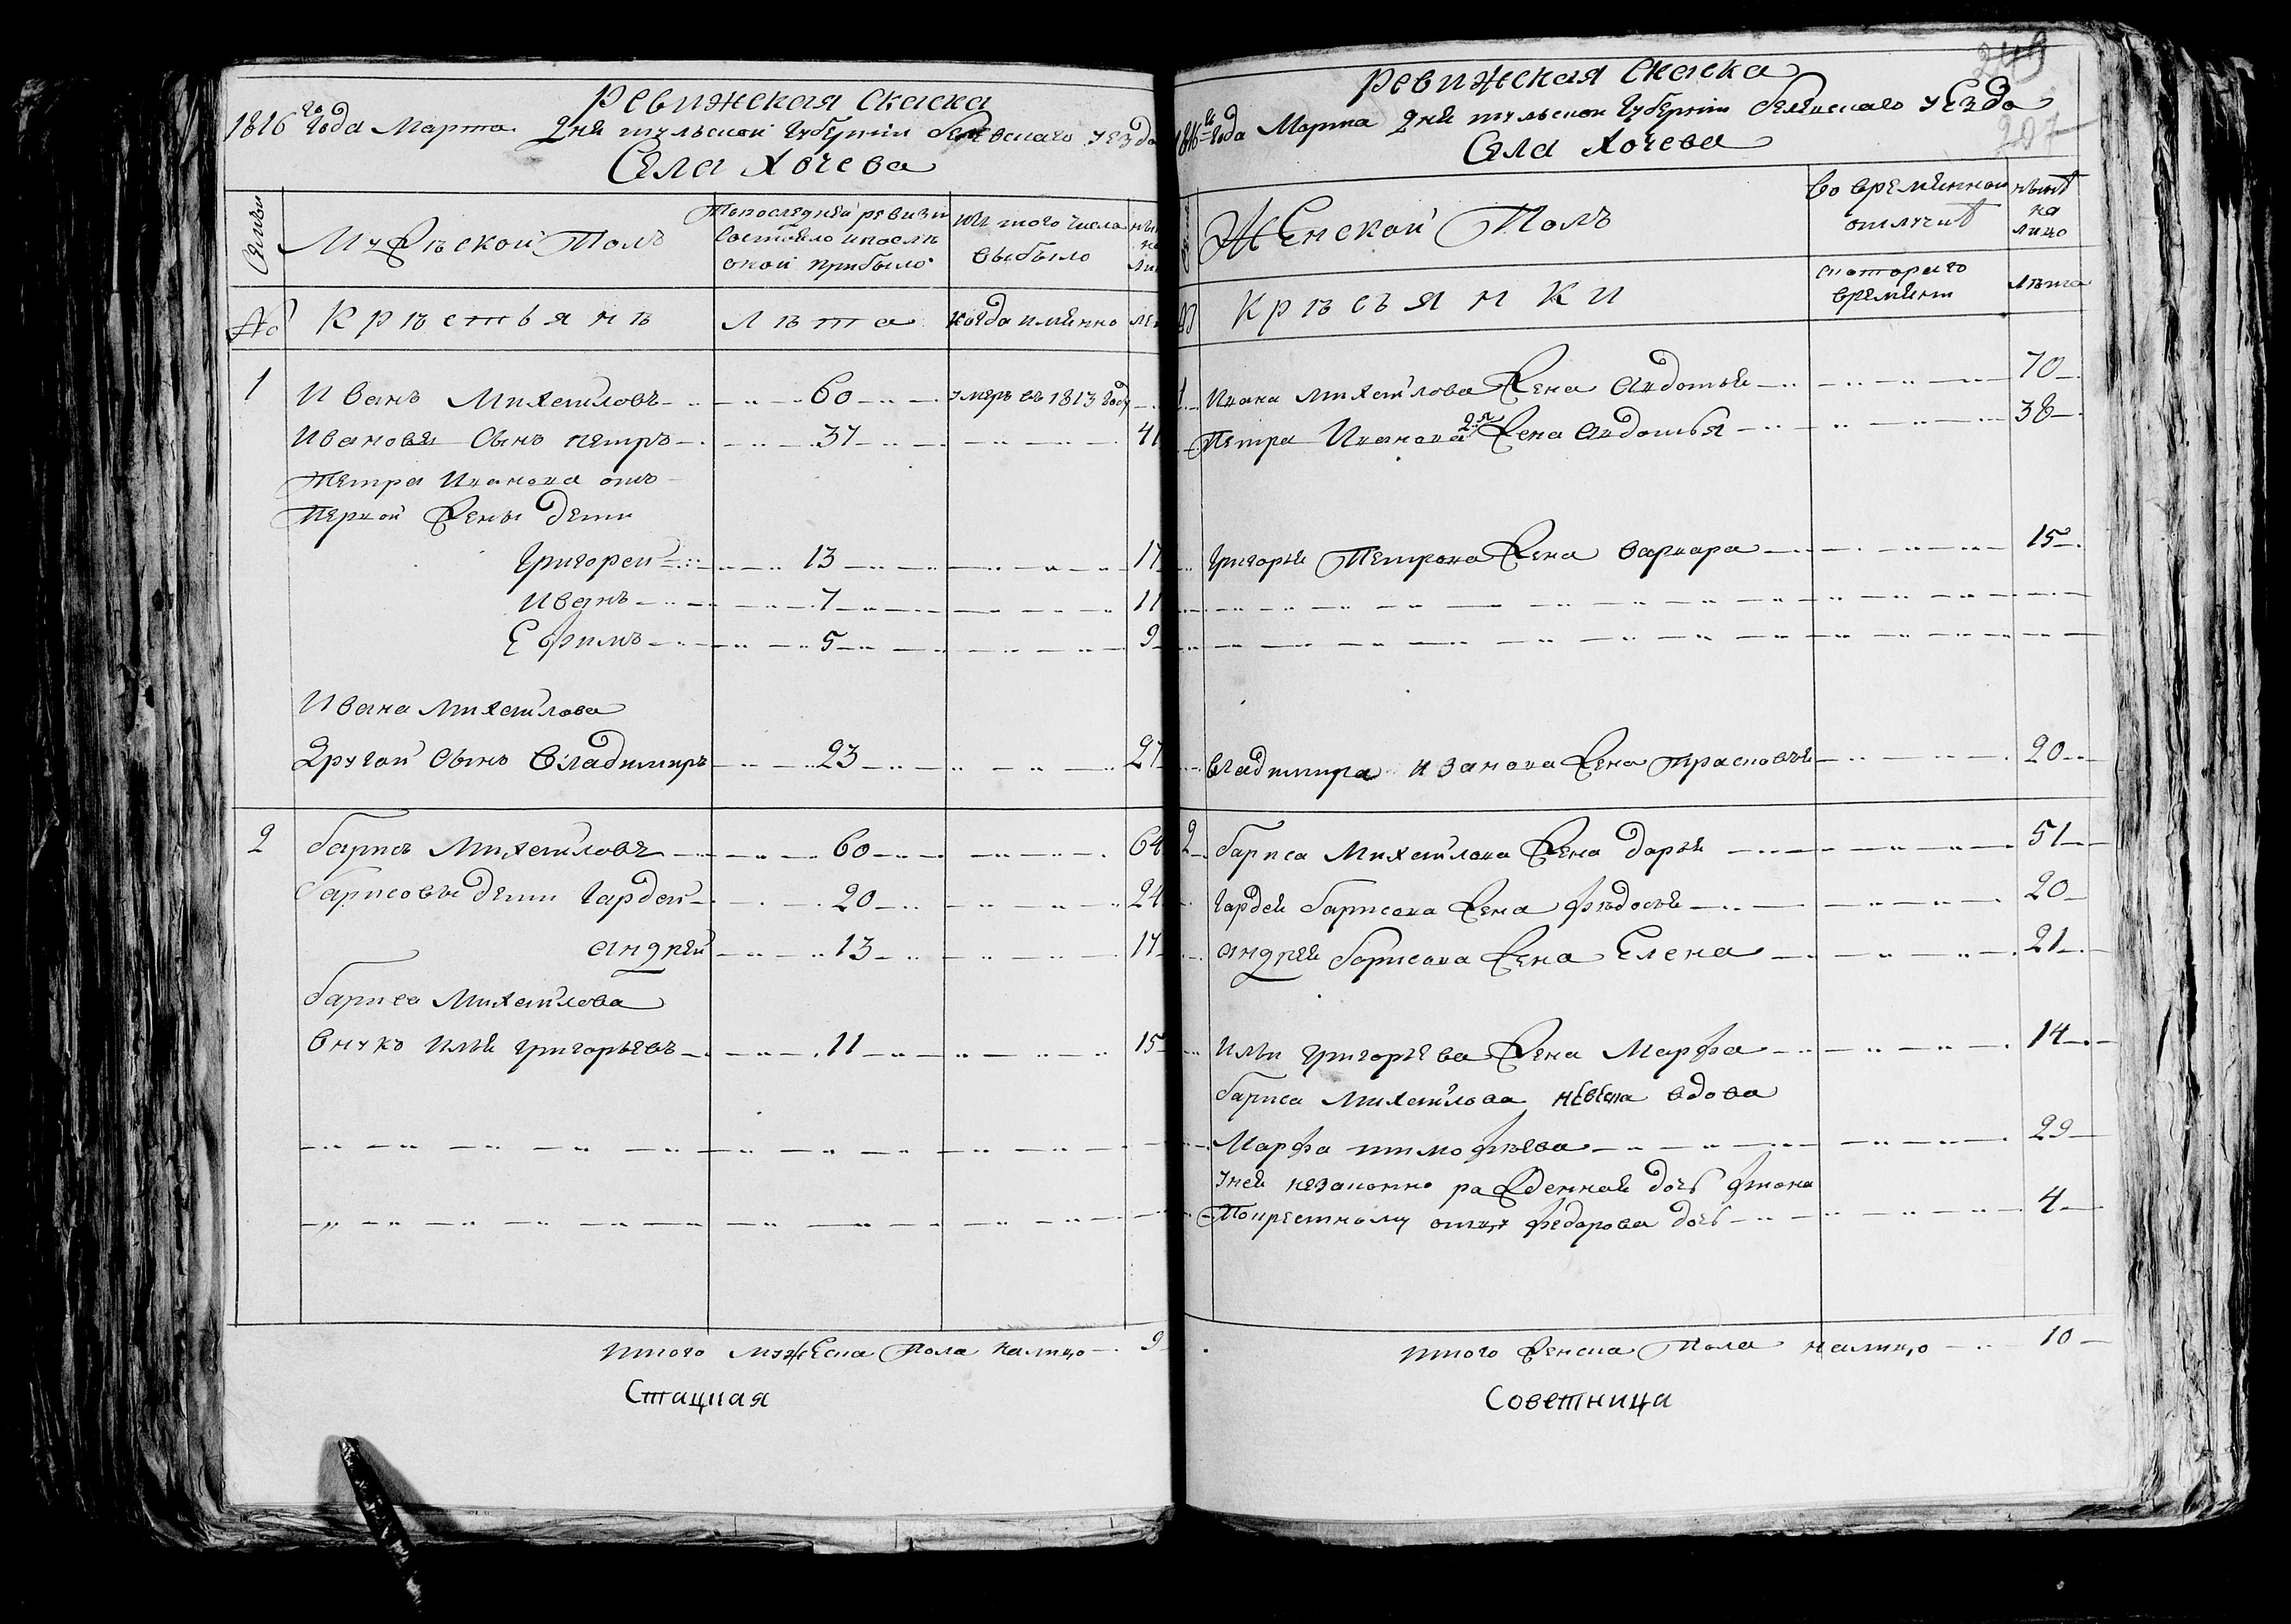 Ревижская скаска
1816 го Года Марта дня тульской Губернии белевскаго уезда
Села Хочева
Семьи
Мужеской Полъ
По последней ревизии
состояло и после
оной прибыло
Изъ того числа
выбыло
№ Крѣстьянъ Лѣта когда имянно
1 Иванъ Михаиловъ 60 умеръ въ 1813 году
Ивановъ Сынъ петръ 37 41
Петра Иванова отъ
Первой жены дети
Григореи 13 17
Иванъ 7 11
Ефимъ 5 9
Ивана Михаилова
Другой сынъ Владимиръ 23 27
2 барисъ Михаиловъ 60 64
барисовы дети Гардеи 20 24
андреи 13 17
бариса Михаилова
внукъ илья григорьевъ 11 15
итого мужеска Пола налицо 9
Стацкая
249
Ревижская скаска
1816 го Года Марта дня тульской Губернии белевскаго уезда
207
Села Хочева
Женской Полъ
во временной
отлучке
ныне
на
лицо
№ Крѣсьянки
с котораго
времени
лѣта
1 Ивана михаилова жена авдотья 70
Петра Иванова 2я жена авдотья 38
Григорья Петрова жена варвара 15
владимира иванова жена прасковья 20
2 бариса Михаилова жена дарья 51
Гардея барисова жена федосья 20
андрея барисова жена Елена 21
Ильи григорьева жена Марфа 14
бариса михаилова невеска вдова
Марфа тимофѣева 29
у ней незаконно рожденная дочь
По крестному отцу федорова дочь 4
итого женска Пола налицо 10
Советница